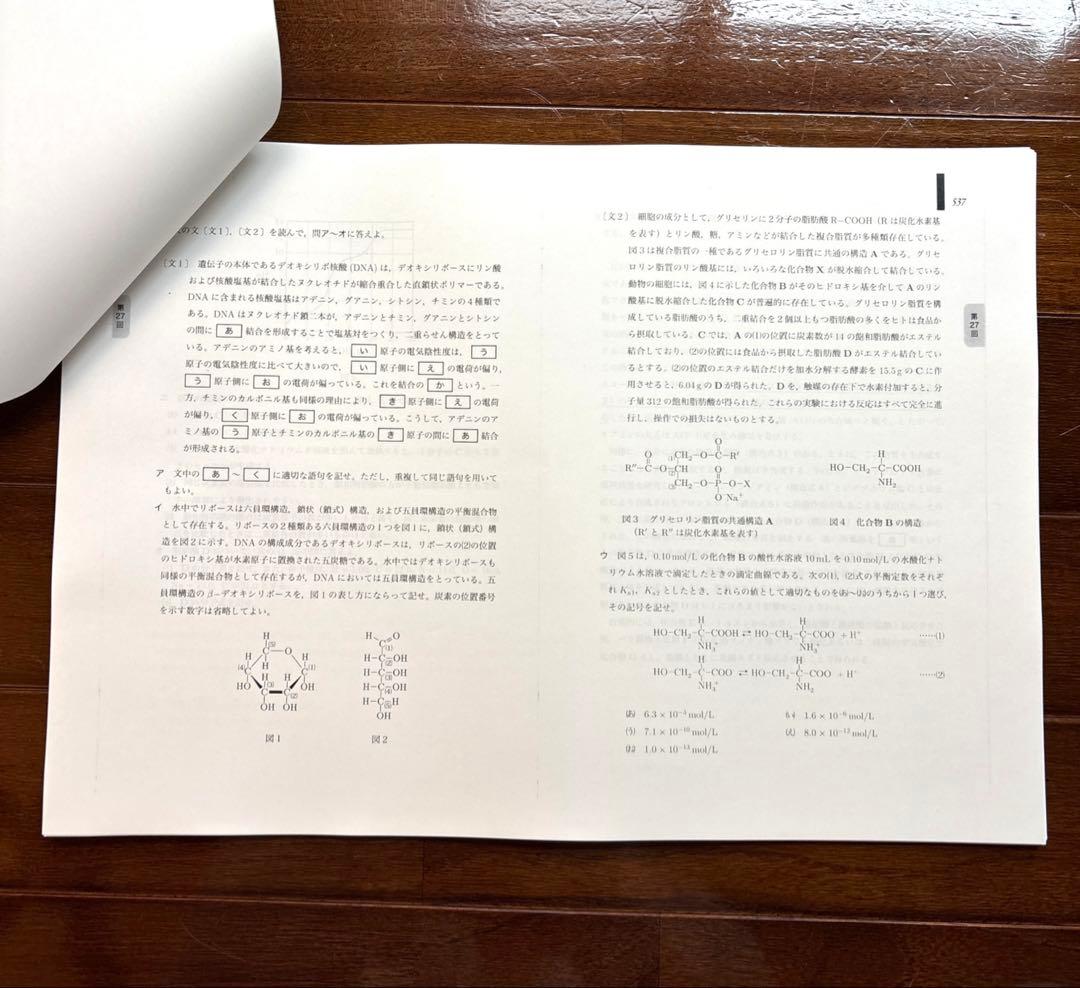 の文〔文1〕,〔文2〕を読んで,問ア〜オに答えよ。
〔文1〕 遺伝子の本体であるデオキシリボ核酸 (DNA) は,デオキシリボースにリン酸
および核酸塩基が結合したヌクレオチドが縮合重合した直鎖状ポリマーである。
DNA に含まれる核酸塩基はアデニン,グアニン,シトシン,チミンの4種類で
ある。DNA はヌクレオチド鎖二本が,アデニンとチミン,グアニンとシトシン
の間に あ 結合を形成することで塩基対をつくり,二重らせん構造をとって
いる。アデニンのアミノ基を考えると, い 原子の電気陰性度は, う
原子の電気陰性度に比べて大きいので, い 原子側に え の電荷が偏り,
う 原子側に お の電荷が偏っている。これを結合の か という。一
方,チミンのカルボニル基も同様の理由により, き 原子側に え の電荷
が偏り, く 原子側に お の電荷が偏っている。こうして,アデニンのア
ミノ基の う 原子とチミンのカルボニル基の き 原子の間に あ 結合
が形成される。
ア 文中の あ 〜 く に適切な語句を記せ。ただし,重複して同じ語句を用いて
もよい。
イ 水中でリボースは六員環構造,鎖状 (鎖式) 構造,および五員環構造の平衡混合物
として存在する。リボースの2種類ある六員環構造の1つを図1に,鎖状 (鎖式) 構
造を図2に示す。DNA の構成成分であるデオキシリボースは,リボースの(2)の位置
のヒドロキシ基が水素原子に置換された五炭糖である。水中ではデオキシリボースも
同様の平衡混合物として存在するが,DNA においては五員環構造をとっている。五
員環構造の β-デオキシリボースを,図1の表し方にならって記せ。炭素の位置番号
を示す数字は省略してよい。
H
C(5) O
H H H
(4)C H C(1)
H H
HO C(3) C(2) OH
OH OH
図1
H O
C(1)
H-C(2)-OH
H-C(3)-OH
H-C(4)-OH
H-C(5)-H
OH
図2
第27回
537
〔文2〕 細胞の成分として,グリセリンに2分子の脂肪酸 R-COOH (R は炭化水素基
を表す) とリン酸,糖,アミンなどが結合した複合脂質が多種類存在している。
図3は複合脂質の一種であるグリセロリン脂質に共通の構造 A である。グリセ
ロリン脂質のリン酸基には,いろいろな化合物 X が脱水縮合して結合している。
動物の細胞には,図4に示した化合物 B がそのヒドロキシ基を介して A のリン
酸基に脱水縮合した化合物 C が普遍的に存在している。グリセロリン脂質を構
成している脂肪酸のうち,二重結合を2個以上もつ脂肪酸の多くをヒトは食品か
ら摂取している。C では,A の(1)の位置に炭素数が14の飽和脂肪酸がエステル
結合しており,(2)の位置には食品から摂取した脂肪酸 D がエステル結合してい
るとする。(2)の位置のエステル結合だけを加水分解する酵素を 15.5 g の C に作
用させると,6.04 g の D が得られた。D を,触媒の存在下で水素付加すると,分
子量312の飽和脂肪酸が得られた。これらの実験における反応はすべて完全に進
行し,操作での損失はないものとする。
O
O (1)CH2-O-C-R′
R″-C-O-(2)CH O
(3)CH2-O-P-O-X
O⁻Na⁺
図3 グリセロリン脂質の共通構造 A
(R′ と R″ は炭化水素基を表す)
H
HO-CH2-C-COOH
NH2
図4 化合物 B の構造
ウ 図5は,0.10 mol/L の化合物 B の酸性水溶液 10 mL を 0.10 mol/L の水酸化ナト
リウム水溶液で滴定したときの滴定曲線である。次の(1),(2)式の平衡定数をそれぞ
れ Ka1,Ka2 としたとき,これらの値として適切なものを(あ)〜(お)のうちから1つ選び,
その記号を記せ。
H H
HO-CH2-C-COOH ⇄ HO-CH2-C-COO⁻ + H⁺ ……(1)
NH3⁺ NH3⁺
H H
HO-CH2-C-COO⁻ ⇄ HO-CH2-C-COO⁻ + H⁺ ……(2)
NH3⁺ NH2
(あ) 6.3 × 10⁻³ mol/L (い) 1.6 × 10⁻⁶ mol/L
(う) 7.1 × 10⁻¹⁰ mol/L (え) 8.0 × 10⁻¹² mol/L
(お) 1.0 × 10⁻¹³ mol/L
第27回